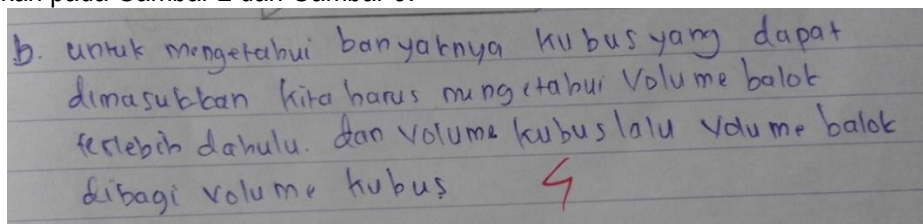 kan pada Gambar 2 dan Gambar 3.
b. untuk mengetahui banyaknya kubus yang dapat
dimasukkan kita harus mengetahui Volume balok
terlebih dahulu. dan volume kubus lalu volume balok
dibagi volume kubus 4